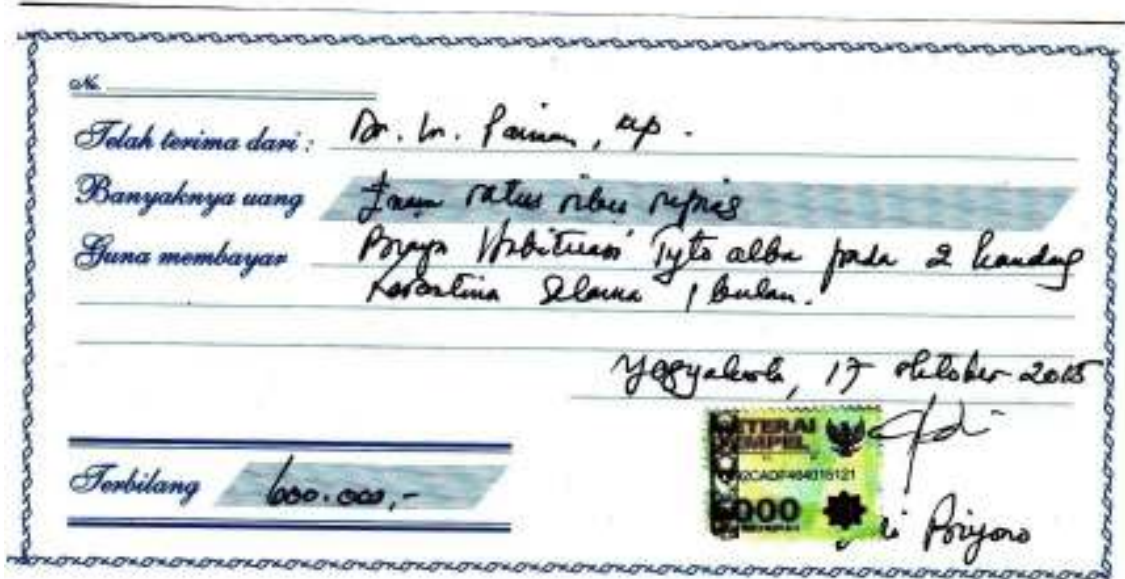 No.
Telah terima dari : Dr. Ir. Paiman, MP.
Banyaknya uang Enam ratus ribu rupiah
Guna membayar Biaya Habituasi Tyto alba pada 2 kandang
karantina selama 1 bulan.
Yogyakarta, 17 Oktober 2015
METERAI
TEMPEL
000
Terbilang 600.000,-